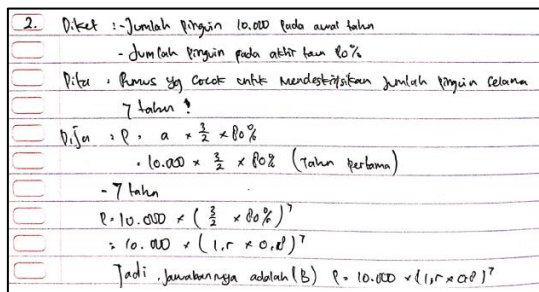 2. Diket : - Jumlah Pinguin 10.000 pada awal tahun
- Jumlah Pinguin pada akhir taun 80%
Dita : Rumus yg Cocok untuk Mendeskripsikan Jumlah Pinguin selama
7 tahun !
Dija : P = a × 3/2 × 80%
= 10.000 × 3/2 × 80% (Tahun Pertama)
- 7 tahun
P = 10.000 × (3/2 × 80%)⁷
= 10.000 × (1,5 × 0,8)⁷
Jadi, Jawabannya adalah (B) P = 10.000 × (1,5 × 0,8)⁷